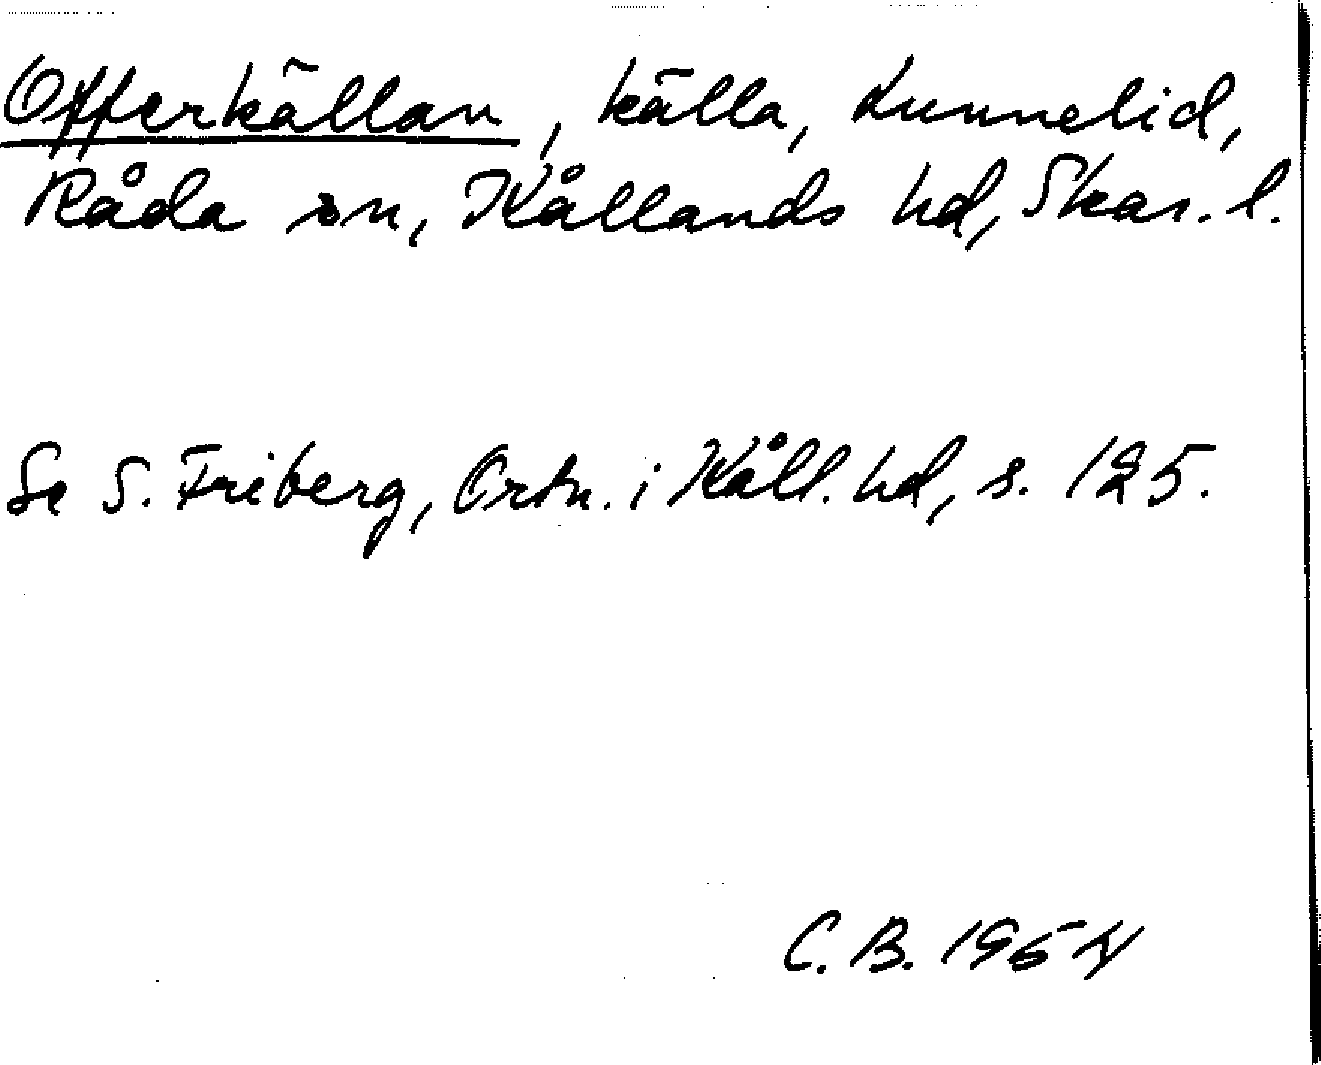 Offerkällan, källa, Lunnelid,
Råda sn, Kållands hd, Skar. l.
Se S. Friberg, Ortn. i Kåll. hd, s. 125.
C. B. 1954